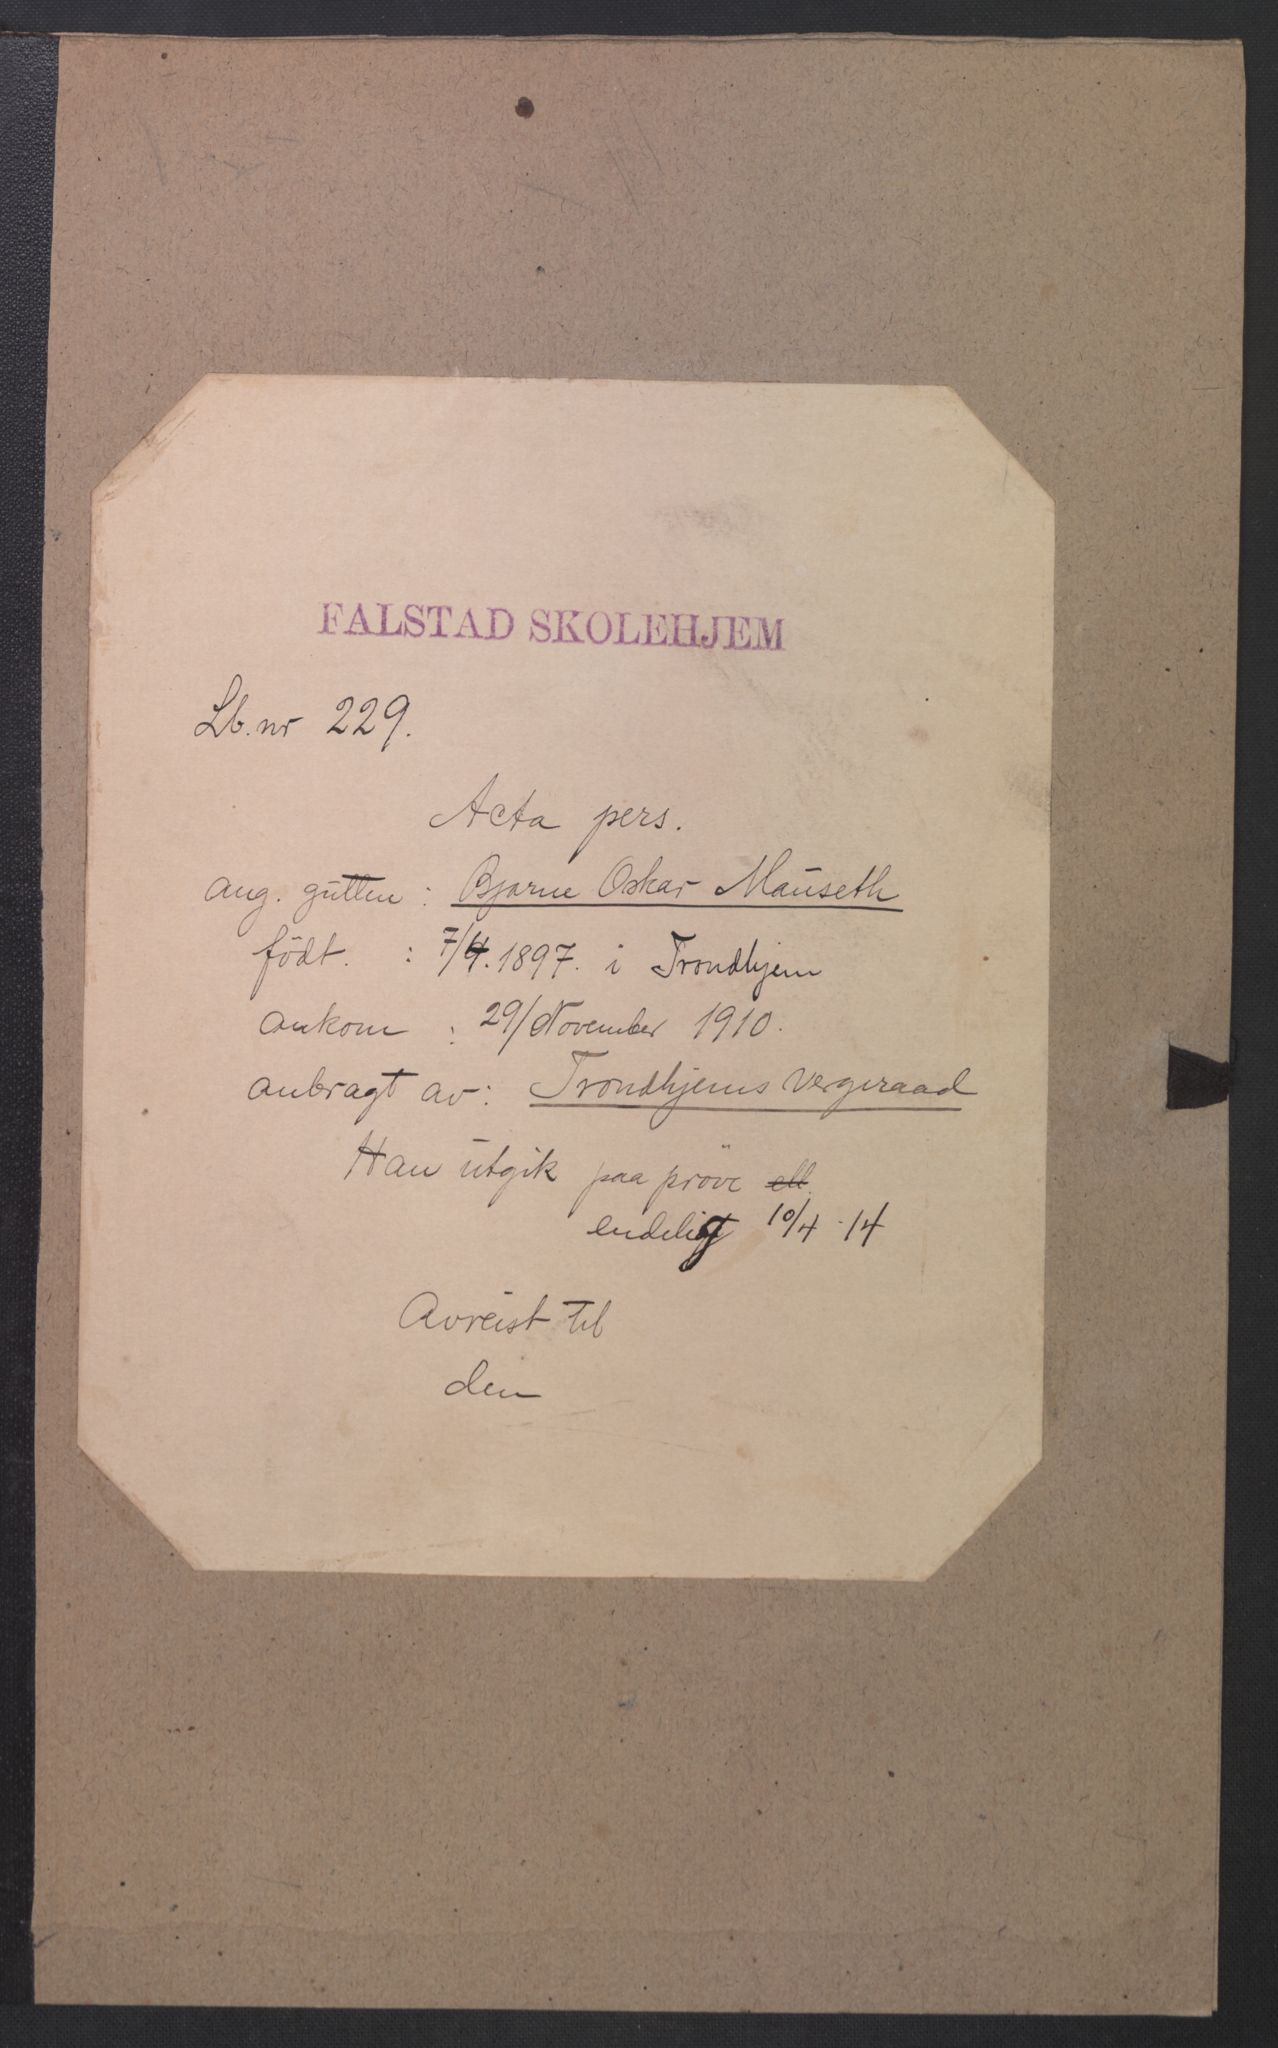 FALSTAD SKOLEHJEM
Lb. nr 229.
Acta pers.
ang. gutten : Bjarne Oskar Mauseth
födt. : 7/4. 1897. i Trondhjem
ankom : 29/November 1910.
anbragt av : Trondhjems Vergeraad
Han utgik paa pröve ell.
endeligt 10/4 - 14
Avreist til
den